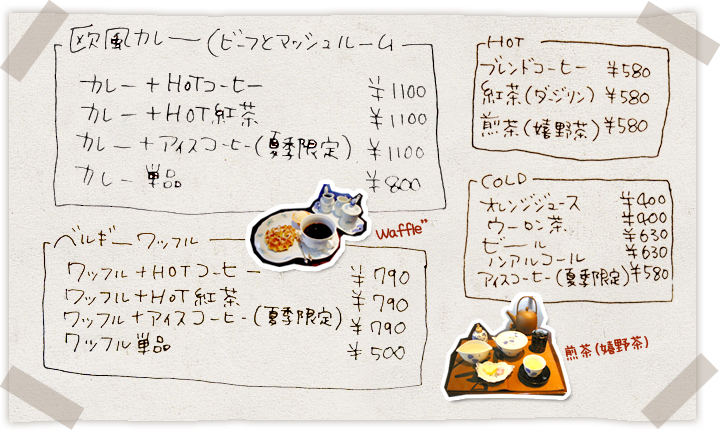 欧風カレー(ビーフとマッシュルーム
カレー+HoTコーヒー ¥1100
カレー+HoT紅茶 ¥1100
カレー+アイスコーヒー(夏季限定) ¥1100
カレー単品 ¥800
waffle"
ベルギーワッフル
ワッフル+HoTコーヒー ¥790
ワッフル+HoT紅茶 ¥790
ワッフル+アイスコーヒー(夏季限定) ¥790
ワッフル単品 ¥500
HOT
ブレンドコーヒー ¥580
紅茶(ダージリン) ¥580
煎茶(嬉野茶) ¥580
COLD
オレンジジュース ¥400
ウーロン茶 ¥400
ビール ¥630
ノンアルコール ¥630
アイスコーヒー(夏季限定) ¥580
煎茶(嬉野茶)